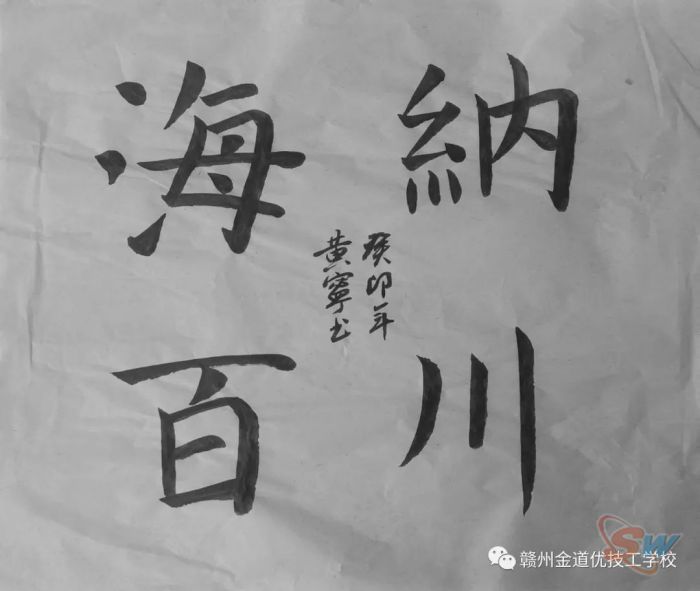 海納
百川
癸卯年
黄寧书
赣州金道优技工学校
SW